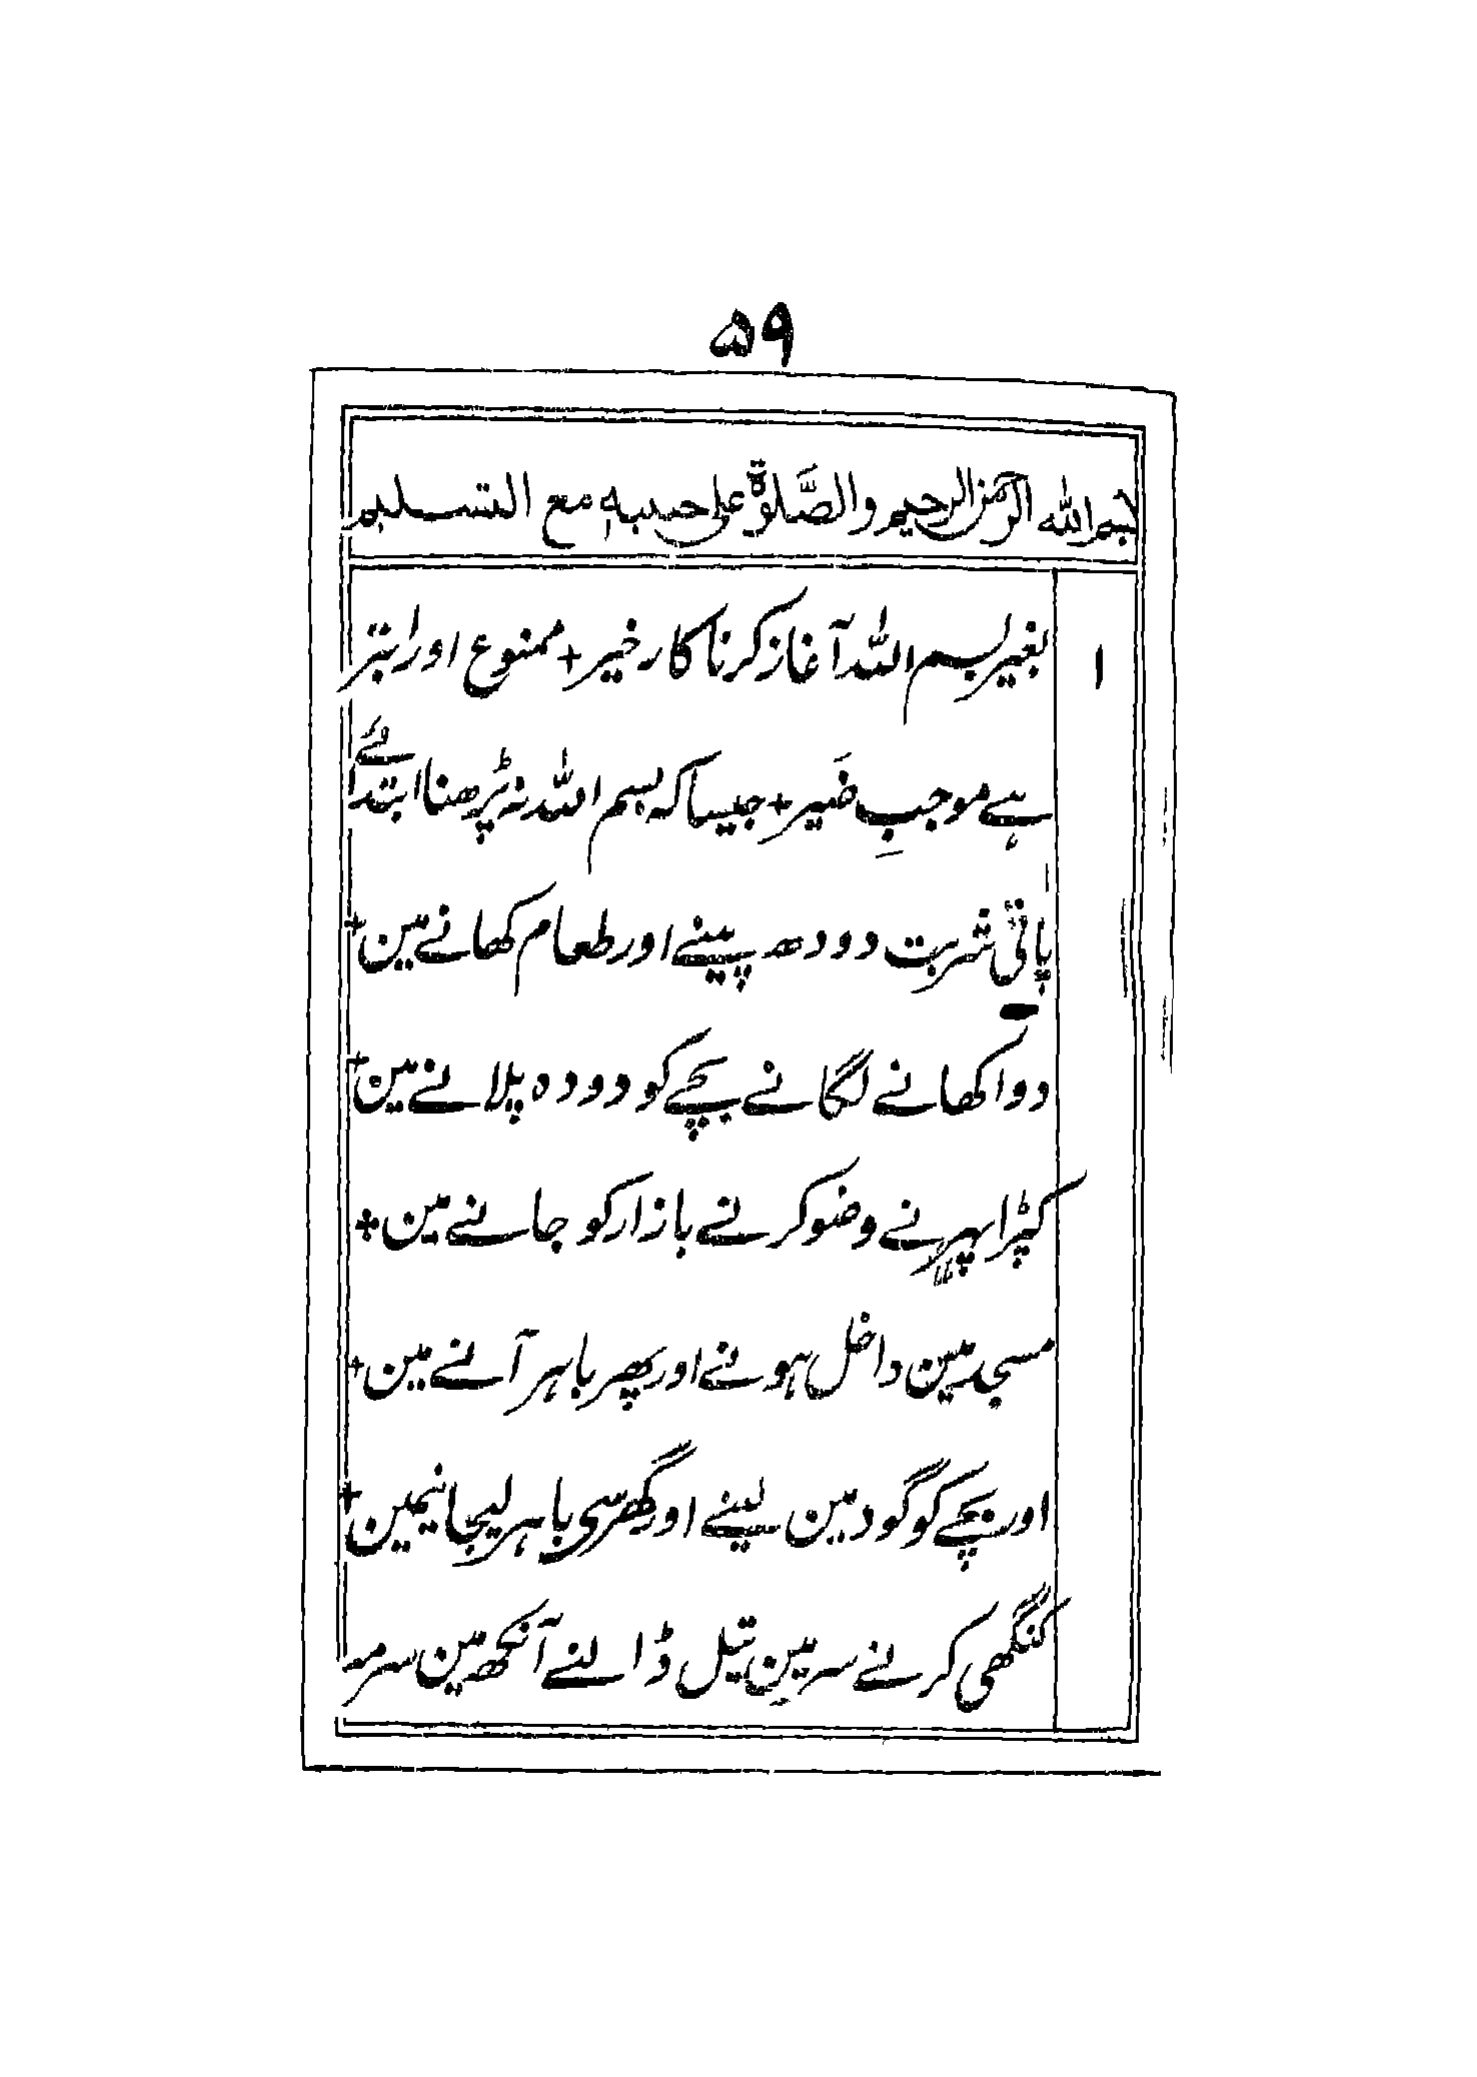 ۵۹
بسم الله الرحمن الرحيم والصَّلوٰة على حبيبهٖ مع التسليم
۱
بغیر بسم اللہ آغاز کرنا کار خیر + ممنوع اور ابتر
ہے موجبِ ضَیر + جیسا کہ بسم اللہ نہ پڑھنا ابتدائے
پانی شربت دودھ پینے اور طعام کھانے مین +
دوا کھانے لگانے بچے کو دودہ پلانے مین +
کپڑا پہرنے وضو کرنے بازار کو جانے مین +
مسجد مین داخل ہونے اور پھر باہر آنے مین +
اور بچے کو گود مین لینے اور گھر سی باہر لیجانیمین +
کنگھی کرنے سر مین تیل ڈالنے آنکھ مین سرمہ